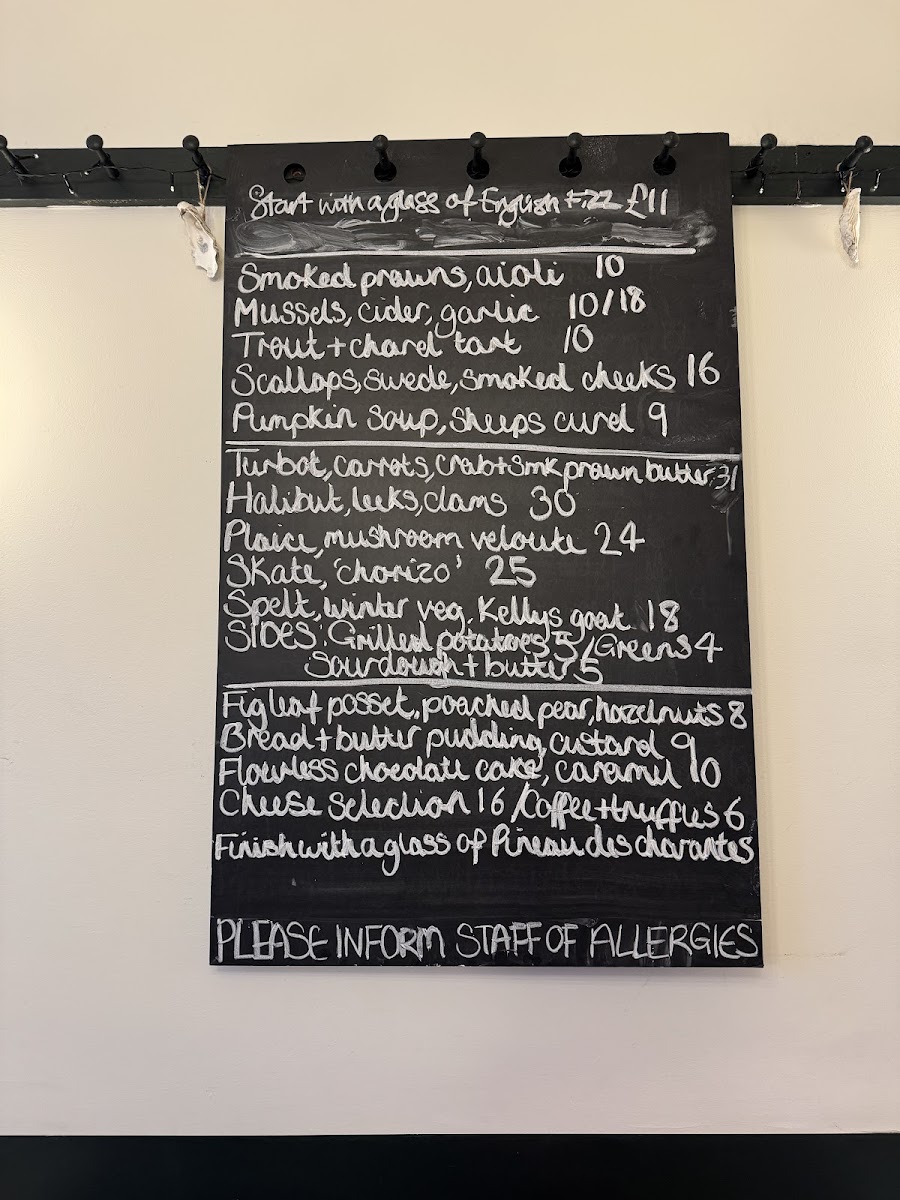 Start with a glass of English Fizz £11
Smoked prawns, aioli 10
Mussels, cider, garlic 10/18
Trout + chard tart 10
Scallops, swede, smoked cheeks 16
Pumpkin soup, sheeps curd 9
Turbot, carrots, crab + smk prawn butter 31
Halibut, leeks, clams 30
Plaice, mushroom veloute 24
Skate, 'chorizo' 25
Spelt, winter veg, Kellys goat 18
SIDES: Grilled potatoes 5 / Greens 4
Sourdough + butter 5
Fig leaf posset, poached pear, hazelnuts 8
Bread + butter pudding, custard 9
Flourless chocolate cake, caramel 10
Cheese selection 16 / Coffee + truffles 6
Finish with a glass of Pineau des charantes
PLEASE INFORM STAFF OF ALLERGIES